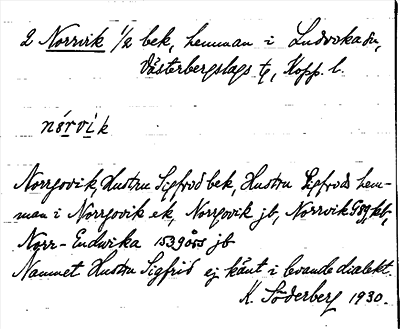 2 Norrvik 1/2 bek, hemman i Ludvika sn,
Västerbergslags tg, Kopp. l.
nórvik
Norrgovik, Hustru Sigfrid bek, Hustru Sigfrids hem-
man i Norrgovik ek, Norrgovik jb, Norrvik GSg kb,
Norr-Endwika 1539 öss jb
Namnet Hustru Sigfrid ej känt i levande dialekt.
K. Söderberg 1930.